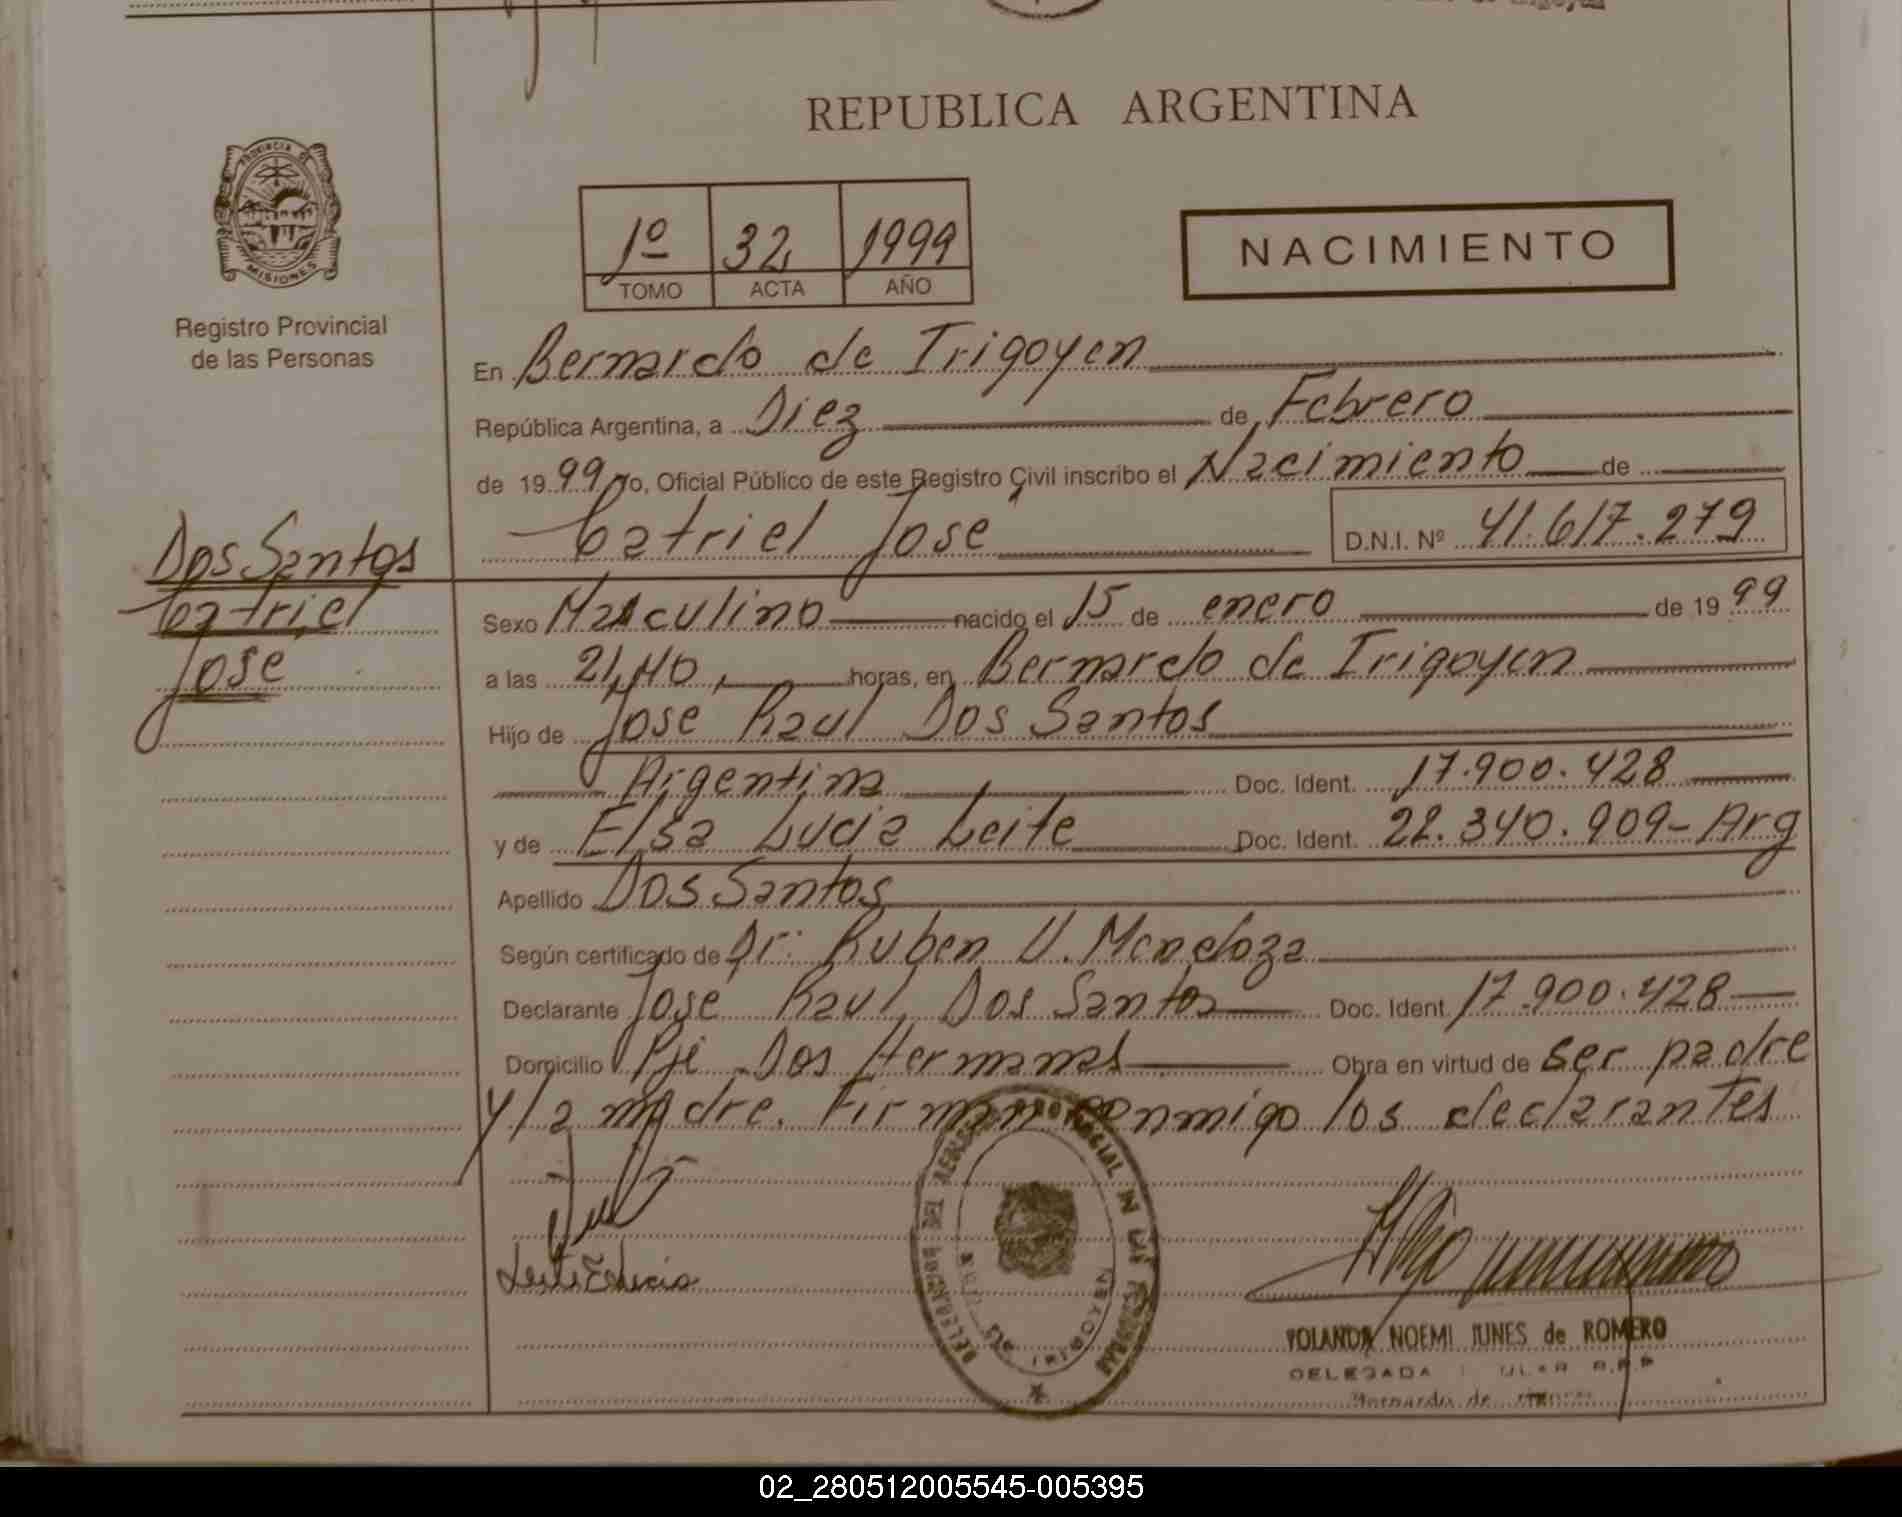 REPUBLICA ARGENTINA
PROVINCIA DE
MISIONES
Registro Provincial
de las Personas
1º 32 1999
TOMO ACTA AÑO
NACIMIENTO
En Bernardo de Irigoyen
República Argentina, a Diez de Febrero
de 1999 yo, Oficial Público de este Registro Civil inscribo el Nacimiento de
Catriel José
D.N.I. Nº 41.617.279
Dos Santos
Catriel
José
Sexo Masculino nacido el 15 de enero de 1999
a las 21,40, horas, en Bernardo de Irigoyen
Hijo de José Raul Dos Santos
Argentina Doc. Ident. 17.900.428
y de Elsa Lucia Leite Doc. Ident. 22.340.909- Arg
Apellido Dos Santos
Según certificado de Dr: Ruben U. Mendoza
Declarante José Raul Dos Santos Doc. Ident. 17.900.428
Domicilio Pje Dos Hermanas Obra en virtud de ser padre
y la madre. Firman conmigo los declarantes
Leite E Lucia
YOLANDA NOEMI IUNES de ROMERO
DELEGADA
Bernardo de
02_280512005545-005395